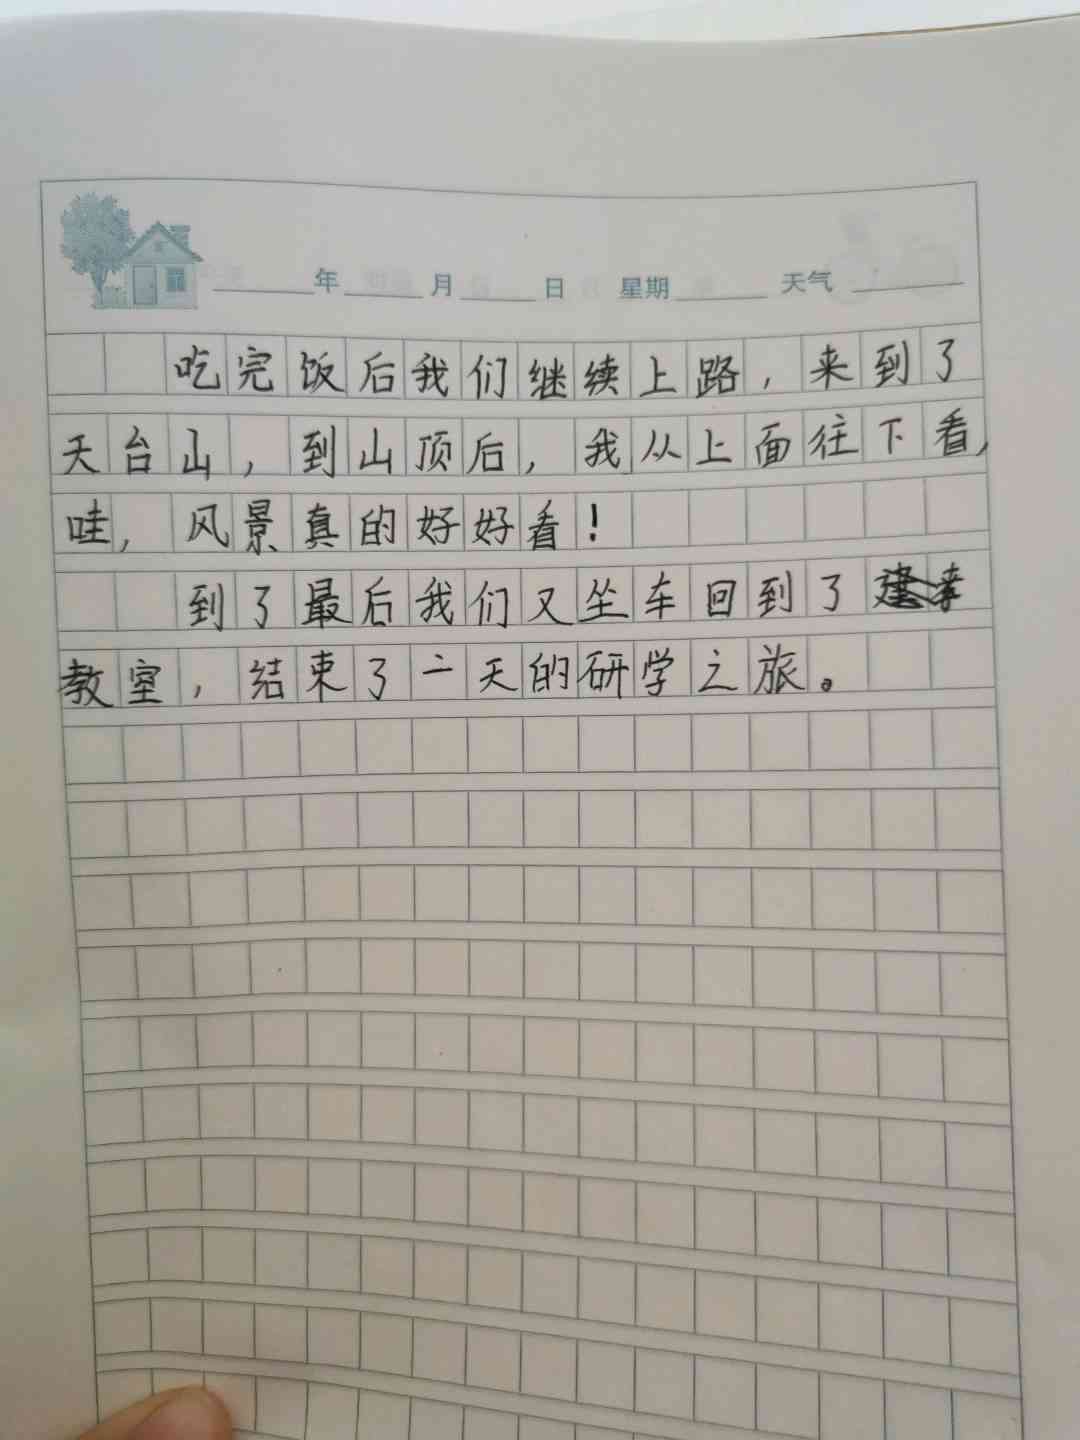 年 月 日 星期 天气
吃完饭后我们继续上路，来到了
天台山，到山顶后，我从上面往下看，
哇，风景真的好好看！
到了最后我们又坐车回到了
教室，结束了二天的研学之旅。